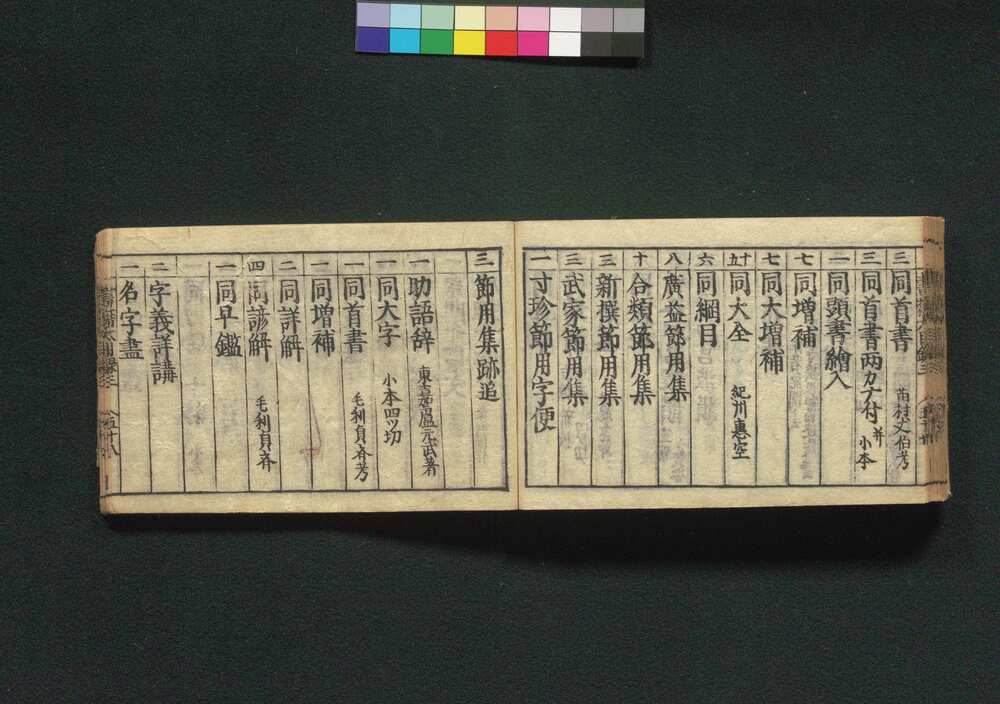 三 同首書 苗村丈伯考
三 同首書両カナ付 并小本
二 同頭書繪入
七 同増補
七 同大増補
十五 同大全 紀州惠空
六 同綱目
八 廣益節用集
十 合類節用集
三 新撰節用集
三 武家節用集
一 寸珍節用字便
三 節用集跡追
一 助語辞 東嘉盧元武著
一 同大字 小本四ツ切
一 同首書 毛利貞斉考
一 同増補
二 同詳解
四 同諺解 毛利貞斉
一 同早鑑
二 字義詳講
一 名字盡